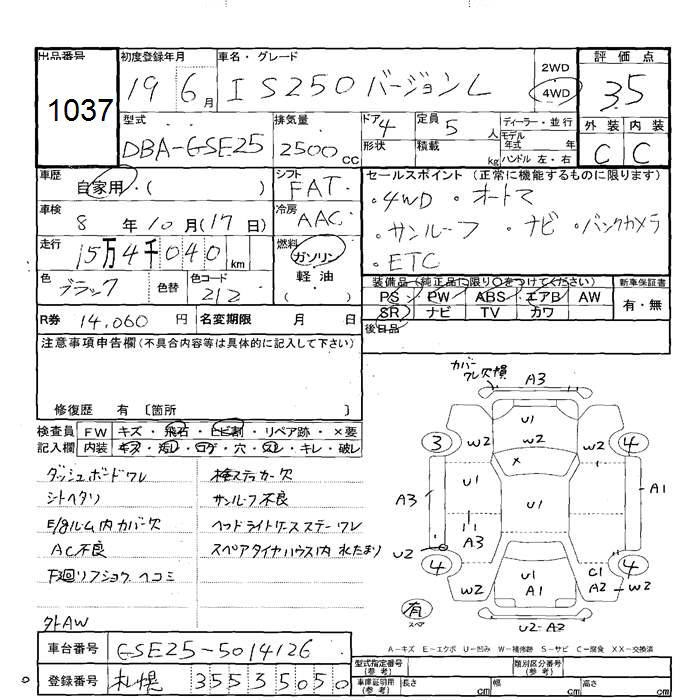 出品番号 初度登録年月 車名・グレード 2WD 評価点
1037 19 6月 IS250 バージョンL 4WD 3.5
型式 排気量 ドア 4 定員 5人 ディーラー・並行 外装 内装
DBA-GSE25 2500cc 形状 積載 kg モデル年式 年 C C
ハンドル 左・右
車歴 自家用・( ) シフト FAT セールスポイント (正常に機能するものに限ります)
車検 8年10月(17日) 冷房 AAC ・4WD ・オートマ
・サンルーフ ・ナビ ・バックカメラ
走行 15万4千040km 燃料 ガソリン 軽油 ( ) ・ETC
色 ブラック 色替 色コード 212 装備品(純正品に限り○をつけてください) 新車保証書
PS PW ABS エアB AW 有・無
SR ナビ TV カワ
R券 14,060円 名変期限 月 日 後日品
注意事項申告欄(不具合内容等は具体的に記入して下さい)
修復歴 有 〔箇所 〕
検査員 FW キズ・飛石・ヒビ割・リペア跡・×要
記入欄 内装 キズ・汚レ・コゲ・穴・スレ・キレ・破レ
ダッシュボードワレ 検ステッカー欠
シートヘタリ サンルーフ不良
E/gルーム内カバー欠 ヘッドライトケースステーワレ
AC不良 スペアタイヤハウス内 水たまり
下廻リフショク ヘコミ
外AW
カバーワレ欠損 A3
U1
3 W2 W2 W2 4
×
A3 U1 U1 A1
A3
U2
4 W2 U1 A1 C1 A2 W2 4
有
スペア
U2-A2
A-キズ E-エクボ U-凹み W-補修跡 S-サビ C-腐食 XX-交換済
車台番号 GSE25-5014126
登録番号 札幌 355 35050
型式指定番号(参考) 類別区分番号(参考)
車庫証明用(参考) 長さ cm 幅 cm 高さ cm